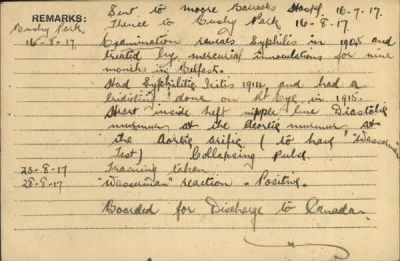 REMARKS: Sent to Moore Barracks Hosp. 16-7-17.
Bushy Park, thence to Bushy Park 16-8-17.
16-8-17 Examination reveals Syphilis in 1905 and
treated by mercurial inoculations for nine
months in Belfast.
Had Syphilitic Iritis 1914 and had a
done on Rt Eye in 1915.
Heart inside left nipple line Diastolic
murmur at the Aortic murmur at
the Aortic orifice (to have "Wasserman
Test) Collapsing Pulse.
23-8-17 Training taken
28-8-17 "Wasserman" reaction - Positive.
Boarded for Discharge to Canada.